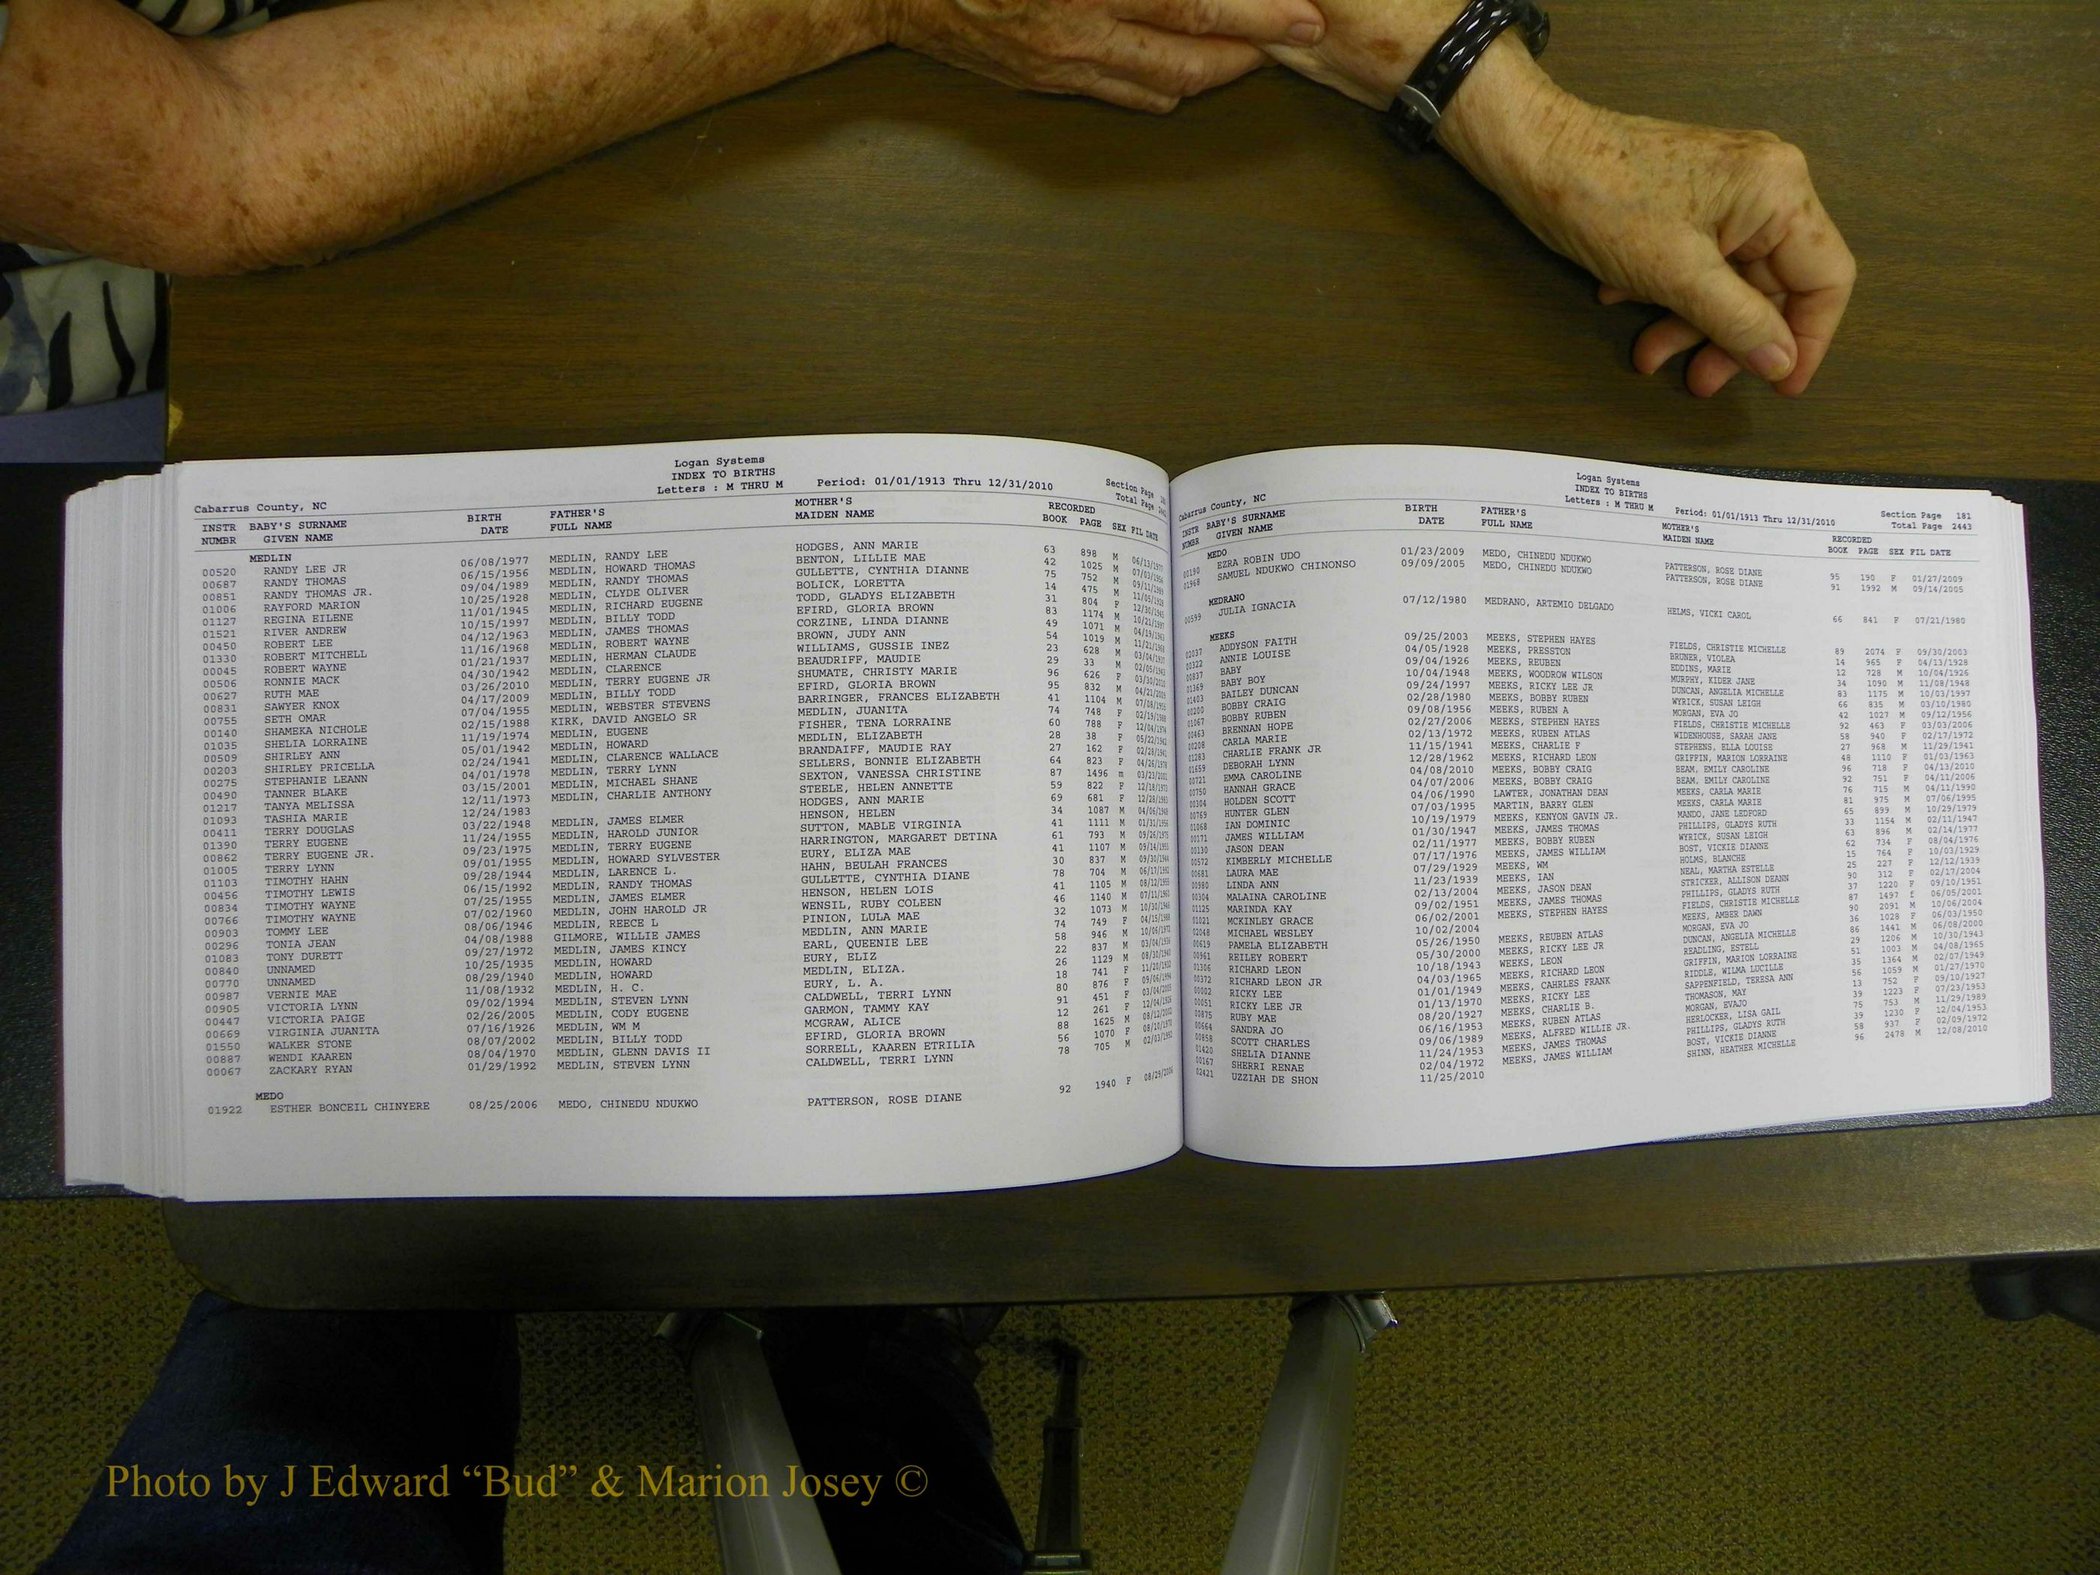 Logan Systems
INDEX TO BIRTHS
Letters : M THRU M Period: 01/01/1913 Thru 12/31/2010
Section Page
Total Page
Cabarrus County, NC
INSTR BABY'S SURNAME BIRTH FATHER'S MOTHER'S RECORDED
NUMBR GIVEN NAME DATE FULL NAME MAIDEN NAME BOOK PAGE SEX FIL DATE
MEDLIN
00520 RANDY LEE JR 06/08/1977 MEDLIN, RANDY LEE HODGES, ANN MARIE 63 898 M 06/13/1977
00687 RANDY THOMAS 06/15/1956 MEDLIN, HOWARD THOMAS BENTON, LILLIE MAE 42 1025 M 07/03/1956
00851 RANDY THOMAS JR. 09/04/1989 MEDLIN, RANDY THOMAS GULLETTE, CYNTHIA DIANNE 75 752 M 09/11/1989
01006 RAYFORD MARION 10/25/1928 MEDLIN, CLYDE OLIVER BOLICK, LORETTA 14 475 M 11/05/1928
01127 REGINA EILENE 11/01/1945 MEDLIN, RICHARD EUGENE TODD, GLADYS ELIZABETH 31 804 F 12/30/1945
01521 RIVER ANDREW 10/15/1997 MEDLIN, BILLY TODD EFIRD, GLORIA BROWN 83 1174 M 10/21/1997
00450 ROBERT LEE 04/12/1963 MEDLIN, JAMES THOMAS CORZINE, LINDA DIANNE 49 1071 M 04/19/1963
01330 ROBERT MITCHELL 11/16/1968 MEDLIN, ROBERT WAYNE BROWN, JUDY ANN 54 1019 M 11/21/1968
00045 ROBERT WAYNE 01/21/1937 MEDLIN, HERMAN CLAUDE WILLIAMS, GUSSIE INEZ 23 628 M 03/04/1937
00506 RONNIE MACK 04/30/1942 MEDLIN, CLARENCE BEAUDRIFF, MAUDIE 29 33 M 02/05/1943
00627 RUTH MAE 03/26/2010 MEDLIN, TERRY EUGENE JR SHUMATE, CHRISTY MARIE 96 626 F 03/30/2010
00831 SAWYER KNOX 04/17/2009 MEDLIN, BILLY TODD EFIRD, GLORIA BROWN 95 832 M 04/21/2009
00755 SETH OMAR 07/04/1955 MEDLIN, WEBSTER STEVENS BARRINGER, FRANCES ELIZABETH 41 1104 M 07/08/1955
00140 SHAMEKA NICHOLE 02/15/1988 KIRK, DAVID ANGELO SR MEDLIN, JUANITA 74 748 F 02/19/1988
01035 SHELIA LORRAINE 11/19/1974 MEDLIN, EUGENE FISHER, TENA LORRAINE 60 788 F 12/04/1974
00509 SHIRLEY ANN 05/01/1942 MEDLIN, HOWARD MEDLIN, ELIZABETH 28 38 F 05/22/1942
00203 SHIRLEY PRICELLA 02/24/1941 MEDLIN, CLARENCE WALLACE BRANDAIFF, MAUDIE RAY 27 162 F 02/28/1941
00275 STEPHANIE LEANN 04/01/1978 MEDLIN, TERRY LYNN SELLERS, BONNIE ELIZABETH 64 823 F 04/26/1978
00490 TANNER BLAKE 03/15/2001 MEDLIN, MICHAEL SHANE SEXTON, VANESSA CHRISTINE 87 1496 m 03/23/2001
01217 TANYA MELISSA 12/11/1973 MEDLIN, CHARLIE ANTHONY STEELE, HELEN ANNETTE 59 822 F 12/18/1973
01093 TASHIA MARIE 12/24/1983 HODGES, ANN MARIE 69 681 F 12/28/1983
00411 TERRY DOUGLAS 03/22/1948 MEDLIN, JAMES ELMER HENSON, HELEN 34 1087 M 04/06/1948
01390 TERRY EUGENE 11/24/1955 MEDLIN, HAROLD JUNIOR SUTTON, MABLE VIRGINIA 41 1111 M 01/31/1956
00862 TERRY EUGENE JR. 09/23/1975 MEDLIN, TERRY EUGENE HARRINGTON, MARGARET DETINA 61 793 M 09/26/1975
01005 TERRY LYNN 09/01/1955 MEDLIN, HOWARD SYLVESTER EURY, ELIZA MAE 41 1107 M 09/14/1955
01103 TIMOTHY HAHN 09/28/1944 MEDLIN, LARENCE L. HAHN, BEULAH FRANCES 30 837 M 09/30/1944
00456 TIMOTHY LEWIS 06/15/1992 MEDLIN, RANDY THOMAS GULLETTE, CYNTHIA DIANE 78 704 M 06/17/1992
00834 TIMOTHY WAYNE 07/25/1955 MEDLIN, JAMES ELMER HENSON, HELEN LOIS 41 1105 M 08/12/1955
00766 TIMOTHY WAYNE 07/02/1960 MEDLIN, JOHN HAROLD JR WENSIL, RUBY COLEEN 46 1140 M 07/11/1960
00903 TOMMY LEE 08/06/1946 MEDLIN, REECE L PINION, LULA MAE 32 1073 M 10/30/1946
00296 TONIA JEAN 04/08/1988 GILMORE, WILLIE JAMES MEDLIN, ANN MARIE 74 749 F 04/15/1988
01083 TONY DURETT 09/27/1972 MEDLIN, JAMES KINCY EARL, QUEENIE LEE 58 946 M 10/06/1972
00840 UNNAMED 10/25/1935 MEDLIN, HOWARD EURY, ELIZ 22 837 M 03/04/1936
00770 UNNAMED 08/29/1940 MEDLIN, HOWARD MEDLIN, ELIZA. 26 1129 M 08/30/1940
00987 VERNIE MAE 11/08/1932 MEDLIN, H. C. EURY, L. A. 18 741 F 11/20/1932
00905 VICTORIA LYNN 09/02/1994 MEDLIN, STEVEN LYNN CALDWELL, TERRI LYNN 80 876 F 09/06/1994
00447 VICTORIA PAIGE 02/26/2005 MEDLIN, CODY EUGENE GARMON, TAMMY KAY 91 451 F 03/04/2005
00669 VIRGINIA JUANITA 07/16/1926 MEDLIN, WM M MCGRAW, ALICE 12 261 F 12/04/1926
01550 WALKER STONE 08/07/2002 MEDLIN, BILLY TODD EFIRD, GLORIA BROWN 88 1625 M 08/12/2002
00887 WENDI KAAREN 08/04/1970 MEDLIN, GLENN DAVIS II SORRELL, KAAREN ETRILIA 56 1070 F 08/10/1970
00067 ZACKARY RYAN 01/29/1992 MEDLIN, STEVEN LYNN CALDWELL, TERRI LYNN 78 705 M 02/03/1992
MEDO
01922 ESTHER BONCEIL CHINYERE 08/25/2006 MEDO, CHINEDU NDUKWO PATTERSON, ROSE DIANE 92 1940 F 08/29/2006
Logan Systems
INDEX TO BIRTHS
Letters : M THRU M Period: 01/01/1913 Thru 12/31/2010
Section Page 181
Total Page 2443
Cabarrus County, NC
INSTR BABY'S SURNAME BIRTH FATHER'S MOTHER'S RECORDED
NUMBR GIVEN NAME DATE FULL NAME MAIDEN NAME BOOK PAGE SEX FIL DATE
MEDO
00190 EZRA ROBIN UDO 01/23/2009 MEDO, CHINEDU NDUKWO PATTERSON, ROSE DIANE 95 190 F 01/27/2009
01968 SAMUEL NDUKWO CHINONSO 09/09/2005 MEDO, CHINEDU NDUKWO PATTERSON, ROSE DIANE 91 1992 M 09/14/2005
MEDRANO
00599 JULIA IGNACIA 07/12/1980 MEDRANO, ARTEMIO DELGADO HELMS, VICKI CAROL 66 841 F 07/21/1980
MEEKS
02037 ADDYSON FAITH 09/25/2003 MEEKS, STEPHEN HAYES FIELDS, CHRISTIE MICHELLE 89 2074 F 09/30/2003
00322 ANNIE LOUISE 04/05/1928 MEEKS, PRESSTON BRUNER, VIOLEA 14 965 F 04/13/1928
00837 BABY 09/04/1926 MEEKS, REUBEN EDDINS, MARIE 12 728 M 10/04/1926
01369 BABY BOY 10/04/1948 MEEKS, WOODROW WILSON MURPHY, KIDER JANE 34 1090 M 11/08/1948
01403 BAILEY DUNCAN 09/24/1997 MEEKS, RICKY LEE JR DUNCAN, ANGELIA MICHELLE 83 1175 M 10/03/1997
00200 BOBBY CRAIG 02/28/1980 MEEKS, BOBBY RUBEN WYRICK, SUSAN LEIGH 66 835 M 03/10/1980
01067 BOBBY RUBEN 09/08/1956 MEEKS, RUBEN A MORGAN, EVA JO 42 1027 M 09/12/1956
00463 BRENNAN HOPE 02/27/2006 MEEKS, STEPHEN HAYES FIELDS, CHRISTIE MICHELLE 92 463 F 03/03/2006
00208 CARLA MARIE 02/13/1972 MEEKS, RUBEN ATLAS WIDENHOUSE, SARAH JANE 58 940 F 02/17/1972
01283 CHARLIE FRANK JR 11/15/1941 MEEKS, CHARLIE F STEPHENS, ELLA LOUISE 27 968 M 11/29/1941
01659 DEBORAH LYNN 12/28/1962 MEEKS, RICHARD LEON GRIFFIN, MARION LORRAINE 48 1110 F 01/03/1963
00721 EMMA CAROLINE 04/08/2010 MEEKS, BOBBY CRAIG BEAM, EMILY CAROLINE 96 718 F 04/13/2010
00750 HANNAH GRACE 04/07/2006 MEEKS, BOBBY CRAIG BEAM, EMILY CAROLINE 92 751 F 04/11/2006
00304 HOLDEN SCOTT 04/06/1990 LAWTER, JONATHAN DEAN MEEKS, CARLA MARIE 76 715 M 04/11/1990
00769 HUNTER GLEN 07/03/1995 MARTIN, BARRY GLEN MEEKS, CARLA MARIE 81 975 M 07/06/1995
01068 IAN DOMINIC 10/19/1979 MEEKS, KENYON GAVIN JR. MANDO, JANE LEDFORD 65 899 M 10/29/1979
00171 JAMES WILLIAM 01/30/1947 MEEKS, JAMES THOMAS PHILLIPS, GLADYS RUTH 33 1154 M 02/11/1947
00130 JASON DEAN 02/11/1977 MEEKS, BOBBY RUBEN WYRICK, SUSAN LEIGH 63 896 M 02/14/1977
00572 KIMBERLY MICHELLE 07/17/1976 MEEKS, JAMES WILLIAM BOST, VICKIE DIANNE 62 734 F 08/04/1976
00681 LAURA MAE 07/29/1929 MEEKS, WM HOLMS, BLANCHE 15 764 F 10/03/1929
00980 LINDA ANN 11/23/1939 MEEKS, IAN NEAL, MARTHA ESTELLE 25 227 F 12/12/1939
00304 MALAINA CAROLINE 02/13/2004 MEEKS, JASON DEAN STRICKER, ALLISON DEANN 90 312 F 02/17/2004
01125 MARINDA KAY 09/02/1951 MEEKS, JAMES THOMAS PHILLIPS, GLADYS RUTH 37 1220 F 09/10/1951
01021 MCKINLEY GRACE 06/02/2001 MEEKS, STEPHEN HAYES FIELDS, CHRISTIE MICHELLE 87 1497 f 06/05/2001
02048 MICHAEL WESLEY 10/02/2004 MEEKS, AMBER DAWN 90 2091 M 10/06/2004
00619 PAMELA ELIZABETH 05/26/1950 MEEKS, REUBEN ATLAS MORGAN, EVA JO 36 1028 F 06/03/1950
00961 REILEY ROBERT 05/30/2000 MEEKS, RICKY LEE JR DUNCAN, ANGELIA MICHELLE 86 1441 M 06/08/2000
01306 RICHARD LEON 10/18/1943 WEEKS, LEON READLING, ESTELL 29 1206 M 10/30/1943
00372 RICHARD LEON JR 04/03/1965 MEEKS, RICHARD LEON GRIFFIN, MARION LORRAINE 51 1003 M 04/08/1965
00002 RICKY LEE 01/01/1949 MEEKS, CAHRLES FRANK RIDDLE, WILMA LUCILLE 35 1364 M 02/07/1949
00051 RICKY LEE JR 01/13/1970 MEEKS, RICKY LEE SAPPENFIELD, TERESA ANN 56 1059 M 01/27/1970
00875 RUBY MAE 08/20/1927 MEEKS, CHARLIE B. THOMASON, MAY 13 752 F 09/10/1927
00664 SANDRA JO 06/16/1953 MEEKS, RUBEN ATLAS MORGAN, EVAJO 39 1223 F 07/23/1953
00858 SCOTT CHARLES 09/06/1989 MEEKS, ALFRED WILLIE JR. HERLOCKER, LISA GAIL 75 753 M 11/29/1989
01420 SHELIA DIANNE 11/24/1953 MEEKS, JAMES THOMAS PHILLIPS, GLADYS RUTH 39 1230 F 12/04/1953
00167 SHERRI RENAE 02/04/1972 MEEKS, JAMES WILLIAM BOST, VICKIE DIANNE 58 937 F 02/09/1972
02421 UZZIAH DE SHON 11/25/2010 SHINN, HEATHER MICHELLE 96 2478 M 12/08/2010
Photo by J Edward “Bud” & Marion Josey ©